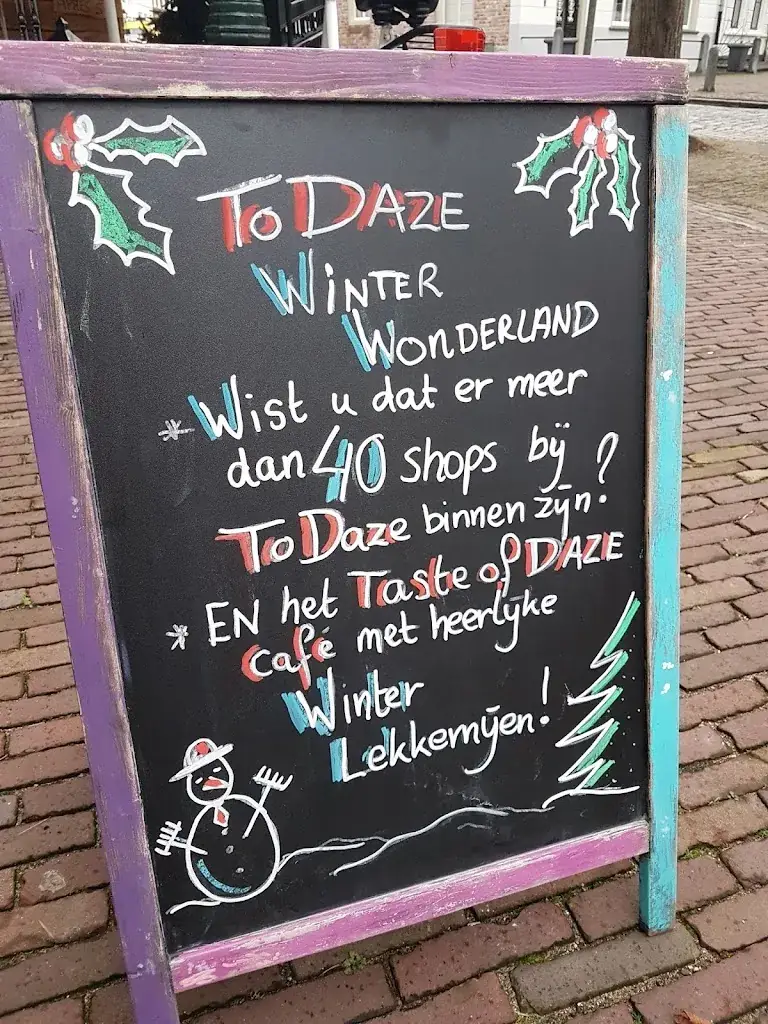 To DAZE
WiNTER
WONDERLAND
* Wist u dat er meer
dan 40 shops bij
To Daze binnen zijn?
* EN het Taste of DAZE
café met heerlijke
Winter
Lekkernijen!